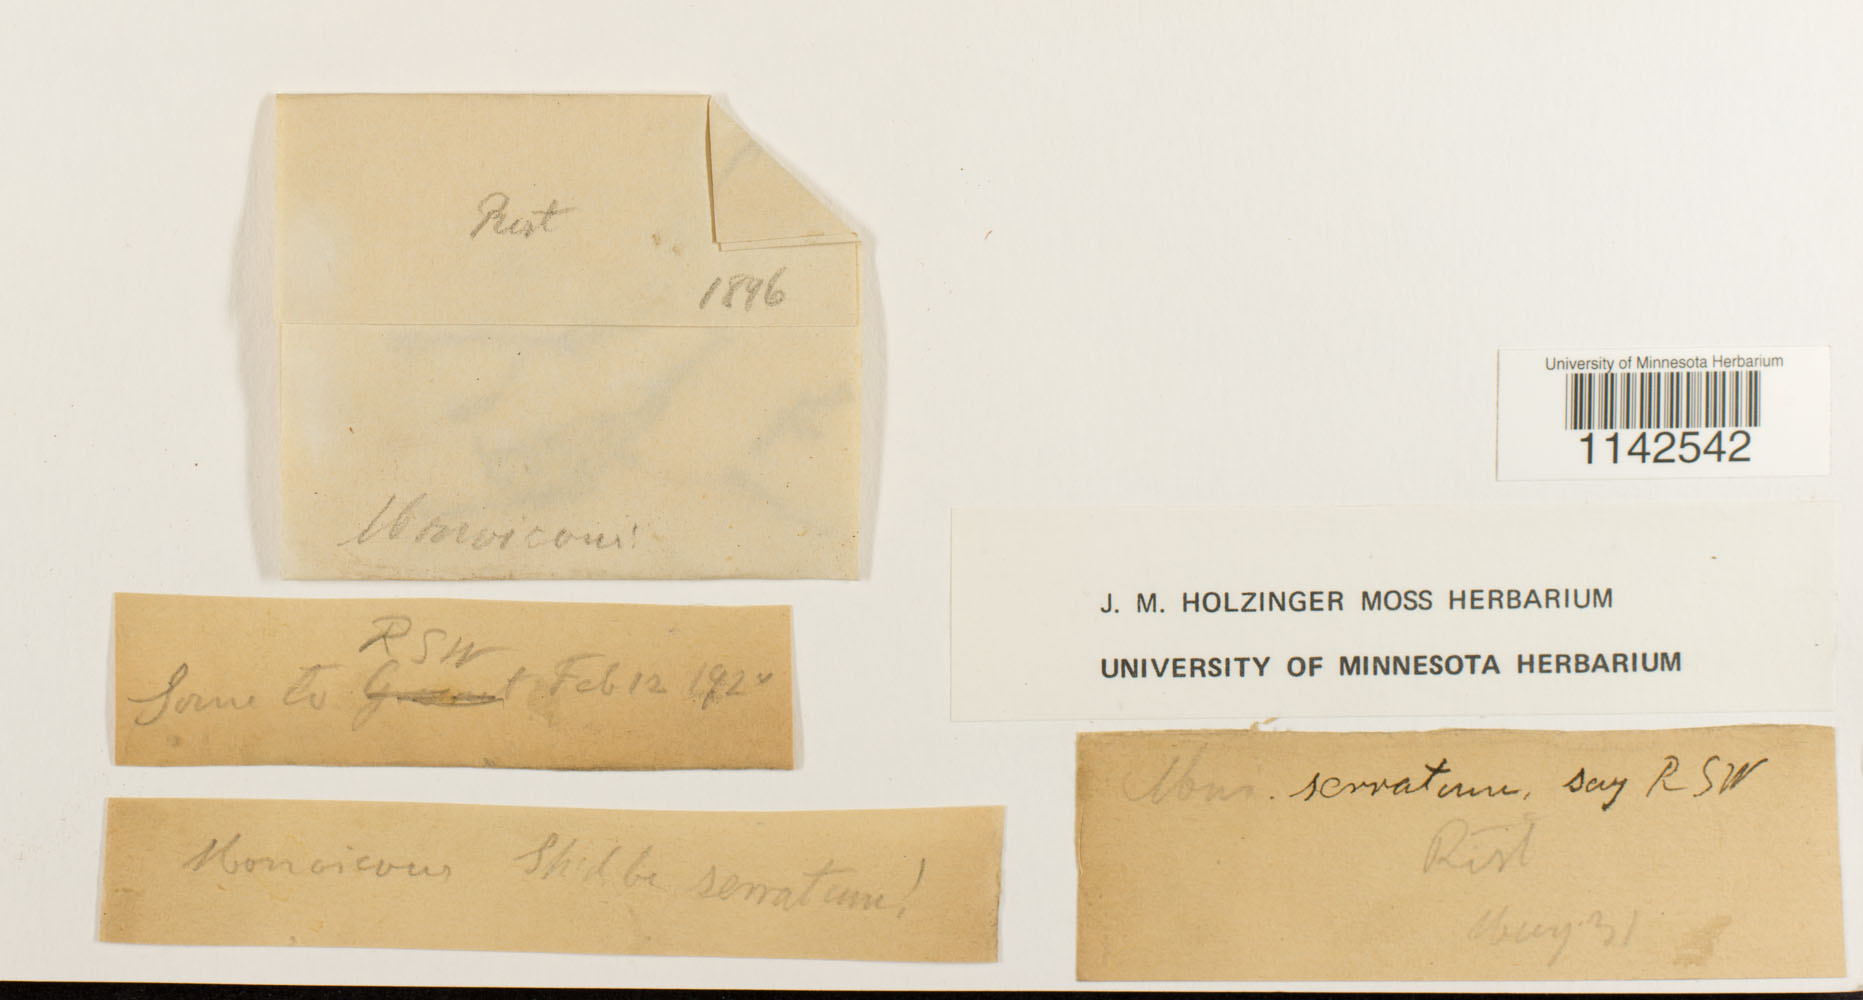 Rist
1896
Monoicous!
RSW
Some to Grout Feb 12 192
Monoicous Shd be serratum!
University of Minnesota Herbarium
1142542
J. M. HOLZINGER MOSS HERBARIUM
UNIVERSITY OF MINNESOTA HERBARIUM
serratum, say RSW
Rist